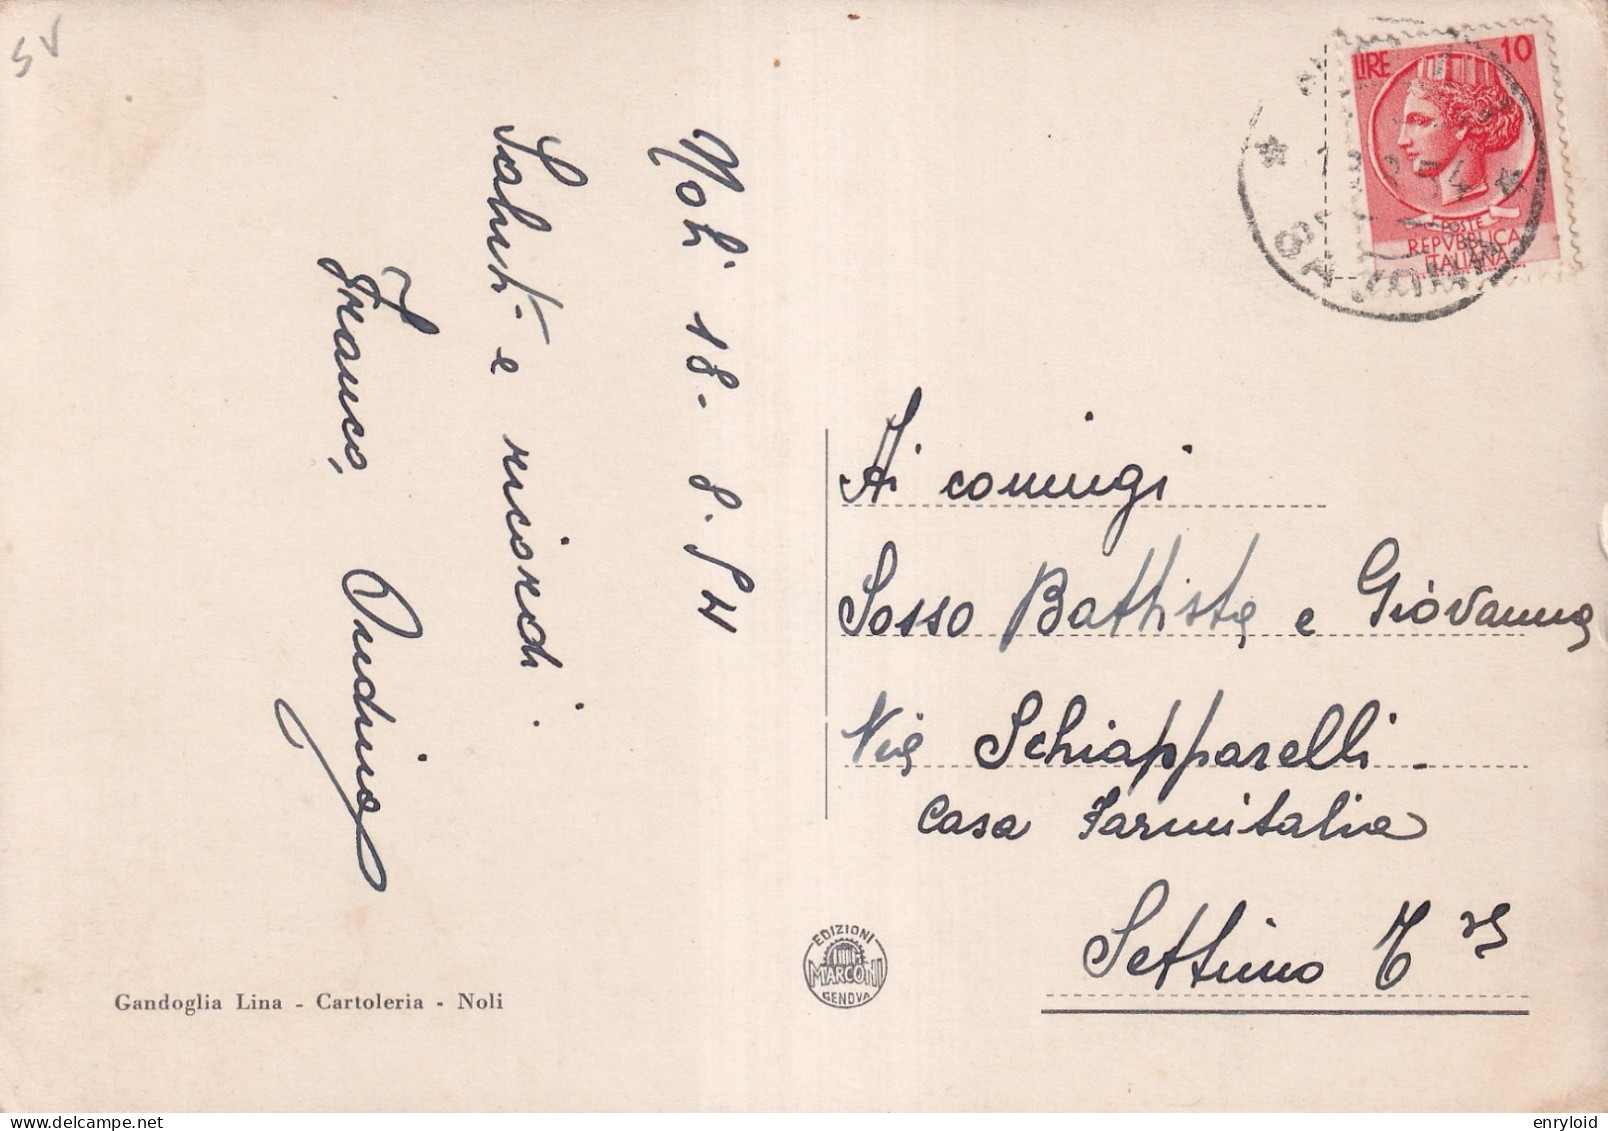 SV
Noli 18-8-54
Saluti e ricordi.
Franco, Andreina
LIRE 10
POSTE
REPVBBLICA
ITALIANA
SAVONA
Ai coniugi
Sosso Battista e Giovanna
Via Schiapparelli -
Casa Farmitalia
Settimo T
EDIZIONI
MARCONI
GENOVA
Gandoglia Lina - Cartoleria - Noli
enryloid